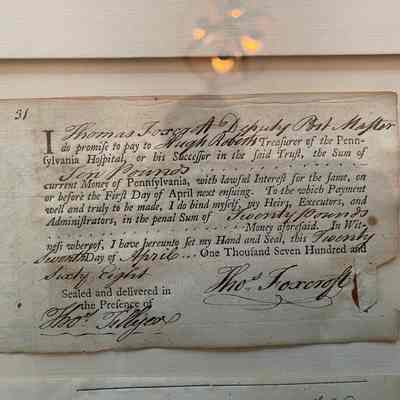 31
I Thomas Foxcroft Deputy Post Master
do promise to pay to Hugh Roberts Treasurer of the Penn-
sylvania Hospital, or his Successor in the said Trust, the Sum of
Ten Pounds
current Money of Pennsylvania, with lawful Interest for the same, on
or before the First Day of April next ensuing. To the which Payment
well and truly to be made, I do bind myself, my Heirs, Executors, and
Administrators, in the penal Sum of Twenty Pounds
Money aforesaid. In Wit-
ness whereof, I have hereunto set my Hand and Seal, this Twenty
Seventh Day of April One Thousand Seven Hundred and
Sixty Eight
Sealed and delivered in
the Presence of
Thos. Foxcroft
Thos. Tillyer